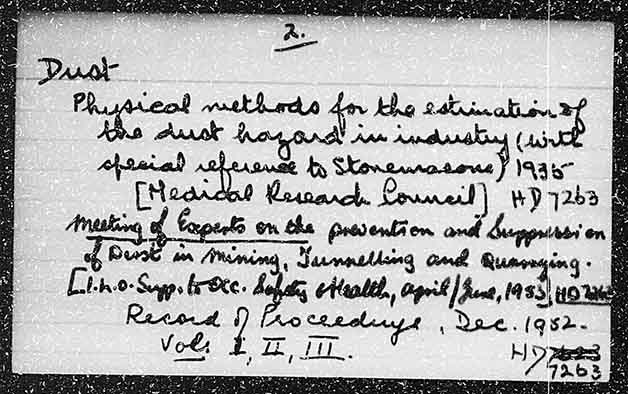 2.
Dust
Physical methods for the estimation of
the dust hazard in industry (with
special reference to Stonemasons) 1935
[Medical Research Council] HD 7263
Meeting of Experts on the prevention and Suppression
of Dust in Mining, Tunnelling and Quarrying.
[I.L.O. Supp. to Occ. Safety & Health, April/June, 1953] HD 7263
Record of Proceedings, Dec. 1952.
Vols I, II, III. HD
7263